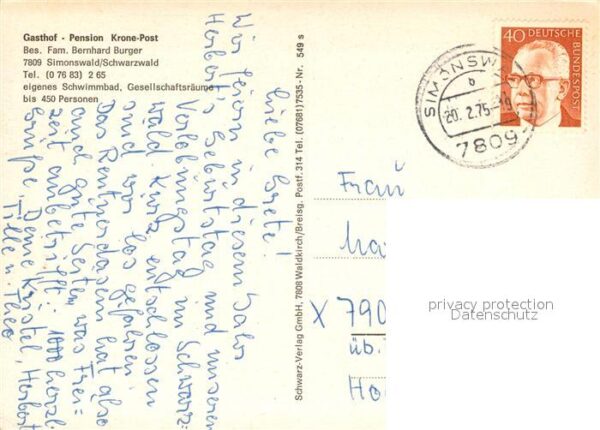 Gasthof - Pension Krone-Post
Bes. Fam. Bernhard Burger
7809 Simonswald/Schwarzwald
Tel. (0 76 83) 2 65
eigenes Schwimmbad, Gesellschaftsräume
bis 450 Personen
Liebe Grete!
Wir feiern in diesem Jahr
Herbert's Geburtstag und unseren
Verlobungstag im Schwarz-
wald. Kurz entschlossen
sind wir los gefahren.
Das Rentnerdasein hat also
auch gute Seiten, was Frei-
zeit anbetrifft. 1000 herzl.
Grüße, Deine Kristel, Herbert,
Tille u. Theo
Schwarz-Verlag GmbH, 7808 Waldkirch/Breisg. Postf. 314 Tel. (07681)7535-Nr. 549 s
40 DEUTSCHE
BUNDESPOST
SIMONSW
b
20. 2. 75
7809
Frau
X 790
üb.
privacy protection
Datenschutz